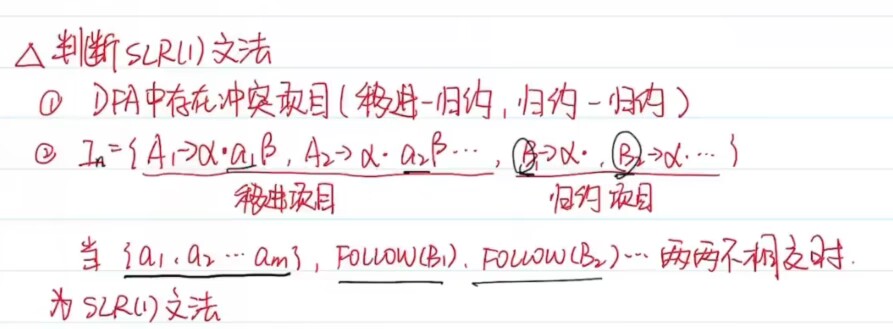 △ 判断SLR(1)文法
① DFA中存在冲突项目(移进-归约,归约-归约)
② In={A₁→α·a₁β, A₂→α·a₂β…, B₁→α·, B₂→α·…}
移进项目 归约项目
当 {a₁,a₂…am}, FOLLOW(B₁), FOLLOW(B₂)… 两两不相交时.
为 SLR(1)文法